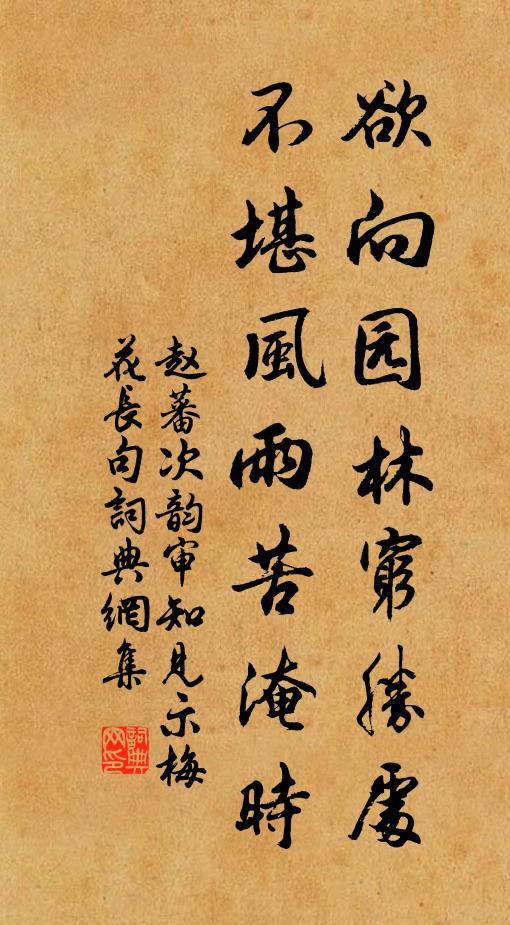 欲向园林窮勝處
不堪風雨苦淹時
赵蕃次韵审知见示梅
花長句詞典網集
詞典
网印